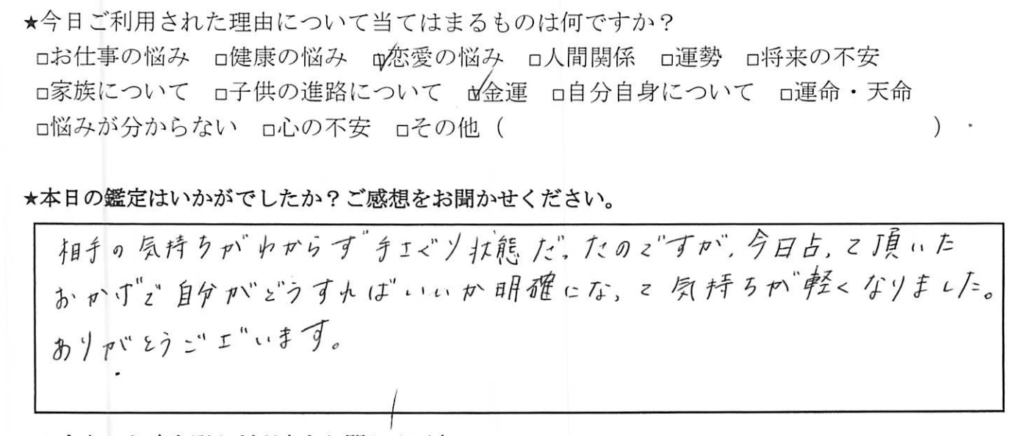 ★今日ご利用された理由について当てはまるものは何ですか？
□お仕事の悩み □健康の悩み ☑恋愛の悩み □人間関係 □運勢 □将来の不安
□家族について □子供の進路について ☑金運 □自分自身について □運命・天命
□悩みが分からない □心の不安 □その他（ ）
★本日の鑑定はいかがでしたか？ご感想をお聞かせください。
相手の気持ちがわからず手さぐり状態だったのですが、今日占って頂いた
おかげで自分がどうすればいいか明確になって気持ちが軽くなりました。
ありがとうございます。